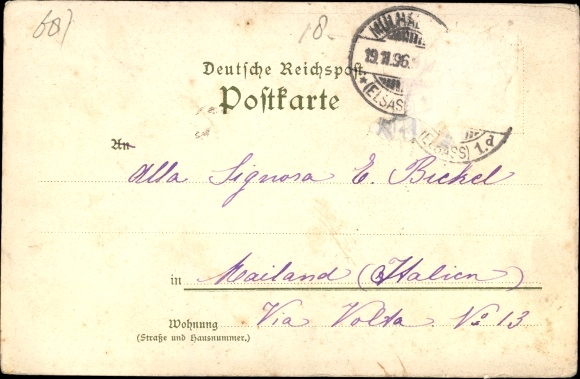 18.
MÜLHA
19.11.96.
(ELSAS
(ELSASS) 1.d
Deutsche Reichspost
Postkarte
An
Alla Signora E. Bickel
in Mailand (Italien)
Wohnung Via Volta No 13
(Straße und Hausnummer.)